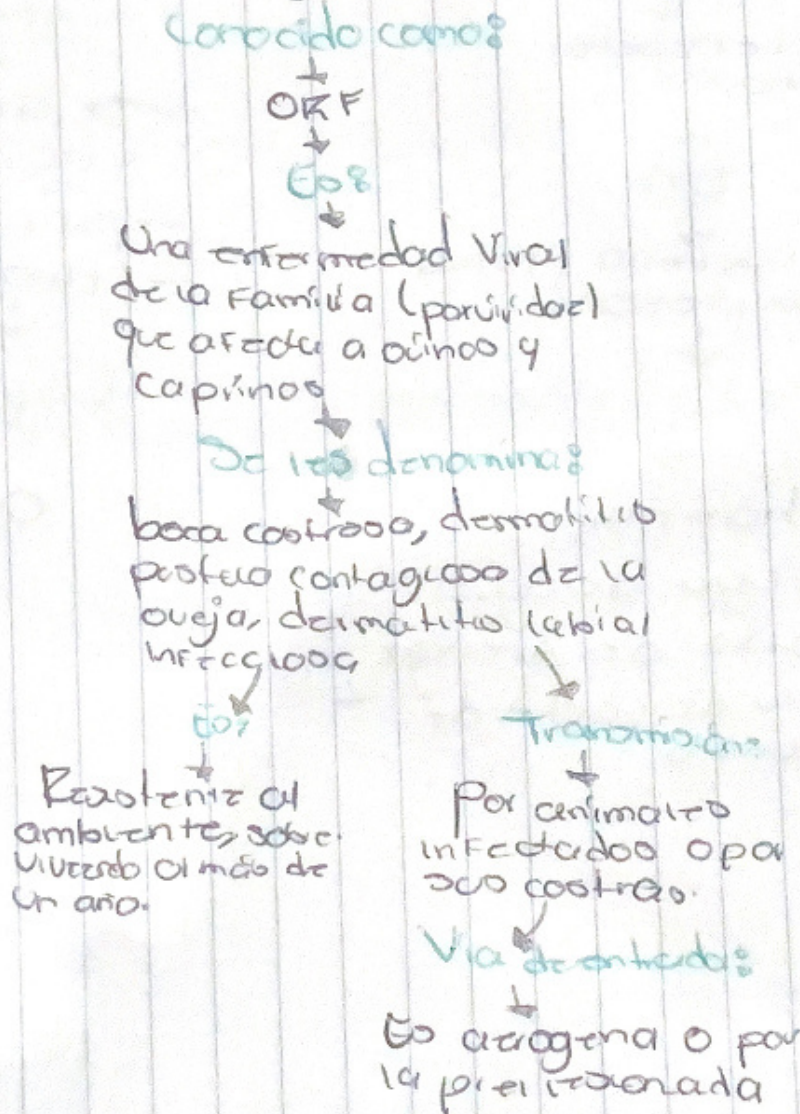 Conocido como:
ORF
Es:
Una enfermedad Viral
de la Familia (parviridae)
que afecta a ovinos y
Caprinos
Se les denomina:
boca costrosa, dermatitis
pustular contagiosa de la
oveja, dermatitis labial
infecciosa
Es,
Transmisión:
Resistente al
ambiente, sobre
viviendo al más de
un año.
Por animales
infectados o por
sus costras.
Via de entrada:
Es aerogena o por
la piel lesionada